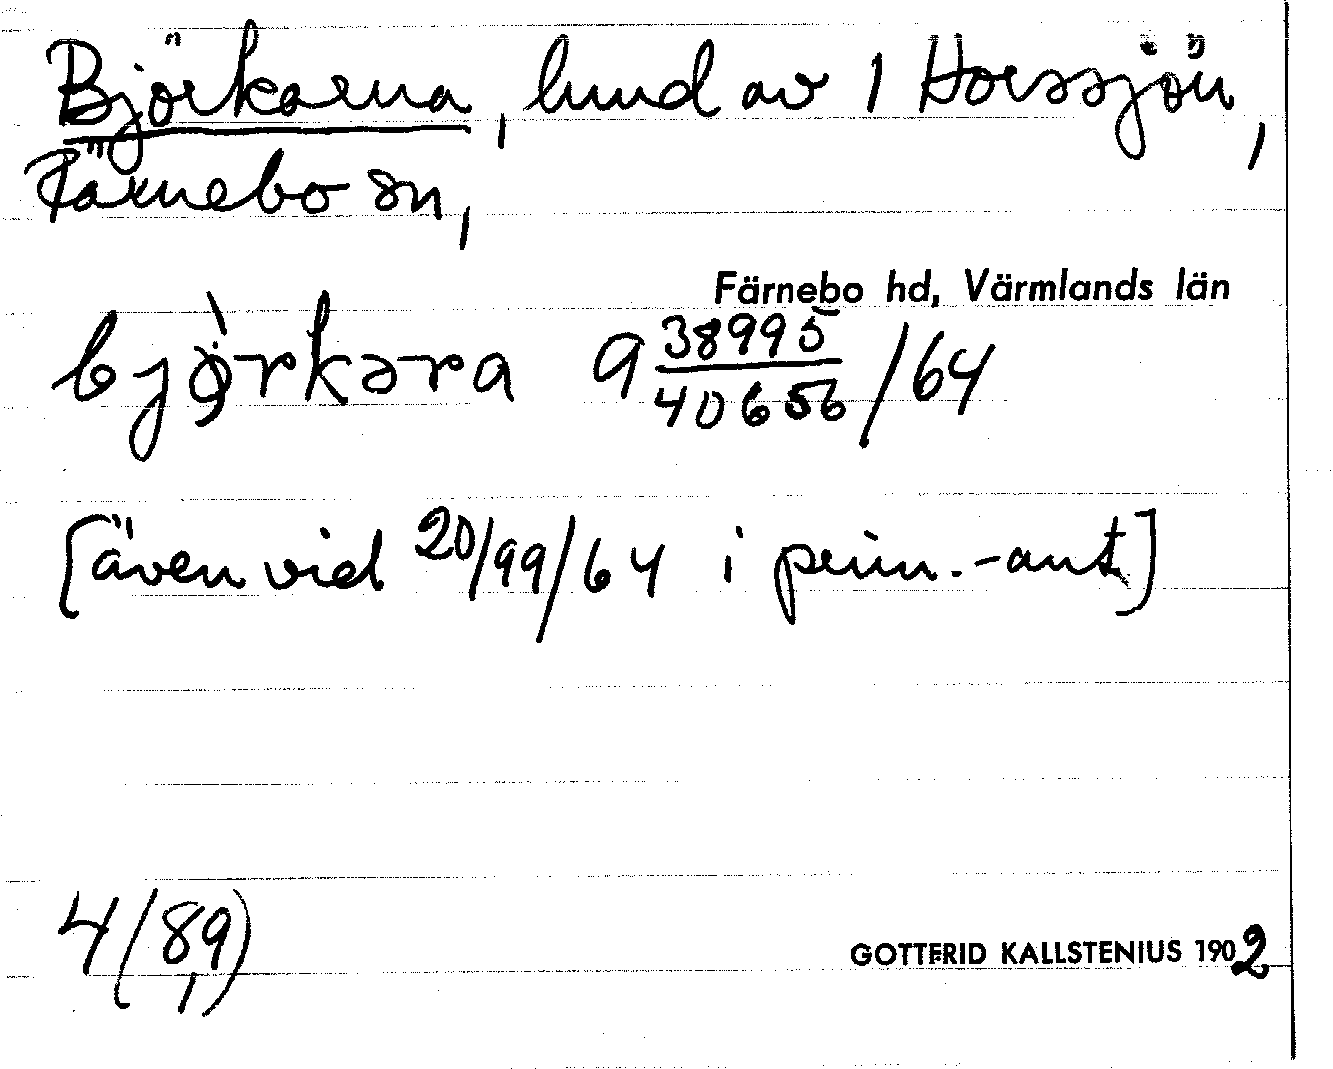 Björkarna, lund av 1 Horssjön,
Färnebo sn,
Färnebo hd, Värmlands län
bjò̜rkəra a 38995/40656/64
[även vid 20/99/64 i prim.-ant]
4(8,9)
GOTTFRID KALLSTENIUS 1902